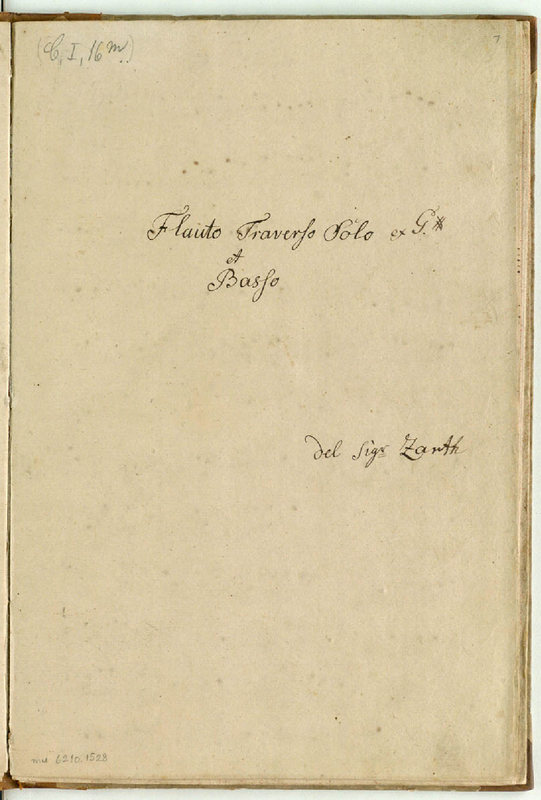 (C, I, 16 m.)
7
Flauto Traverso Solo ex G.#
et
Basso
del Sigr Zarth
mu 6210.1528